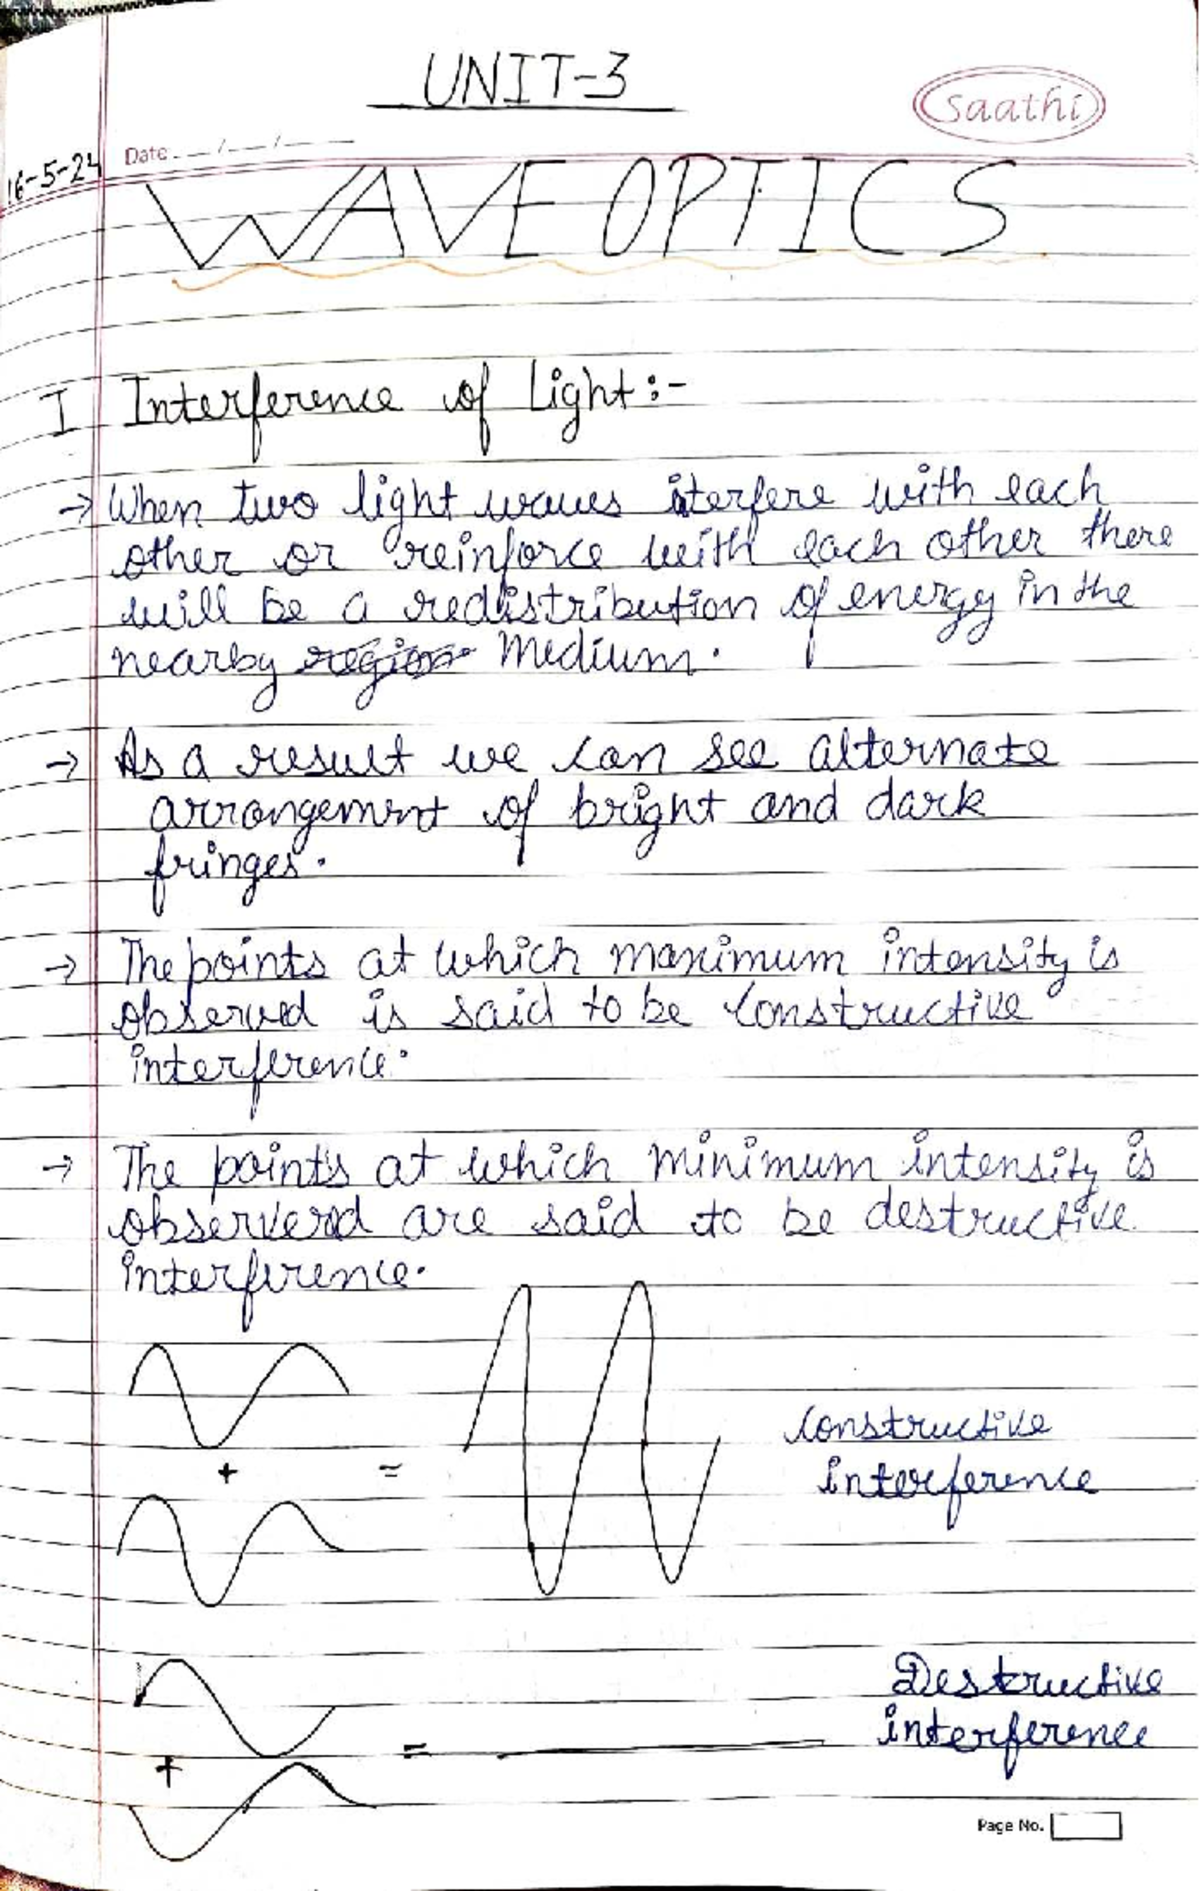 UNIT-3
Saathi
Date __/__/____
16-5-24
WAVE OPTICS
I Interference of Light:-
→ When two light waves iterfere with each
other or reinforce with each other there
will be a redistribution of energy in the
nearby region Medium.
→ As a result we can see alternate
arrangement of bright and dark
fringes.
→ The points at which maximum intensity is
observed is said to be constructive
interference.
→ The points at which minimum intensity is
observered are said to be destructive
interference.
+ =
Constructive
interference
Destructive
interference
+ =
Page No.